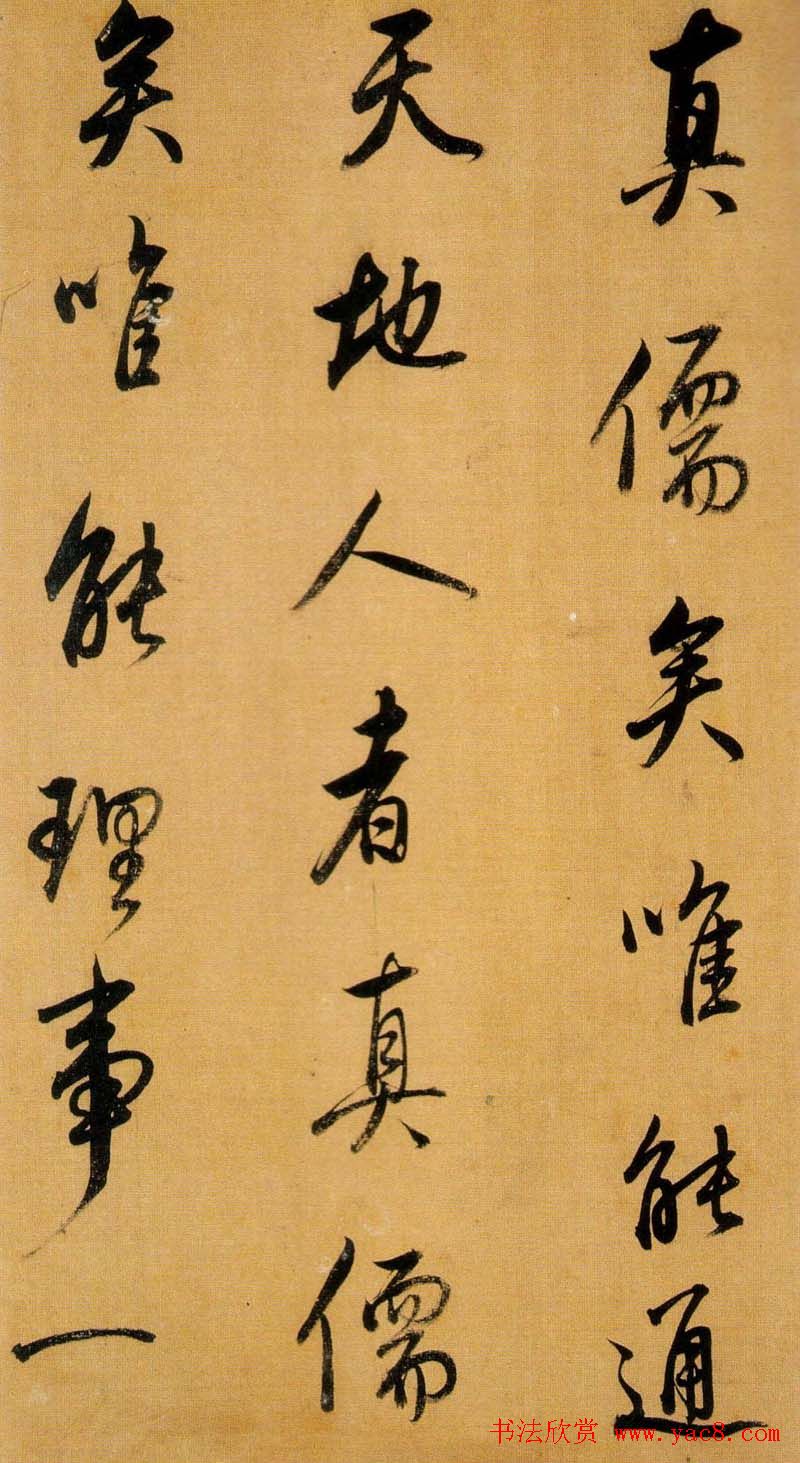 真儒矣唯能通
天地人者真儒
矣唯能理事一
书法欣赏 www.yac8.com